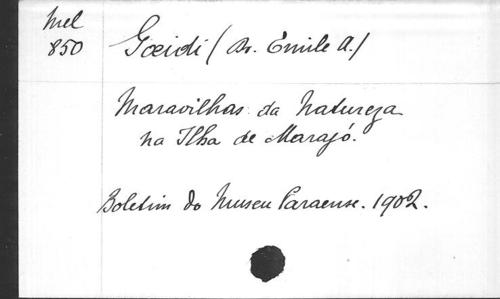 Mel
850
Goeidi (Dr. Emile A.)
Maravilhas da Natureza
na Ilha de Marajó.
Boletim do Museu Paraense. 1902.